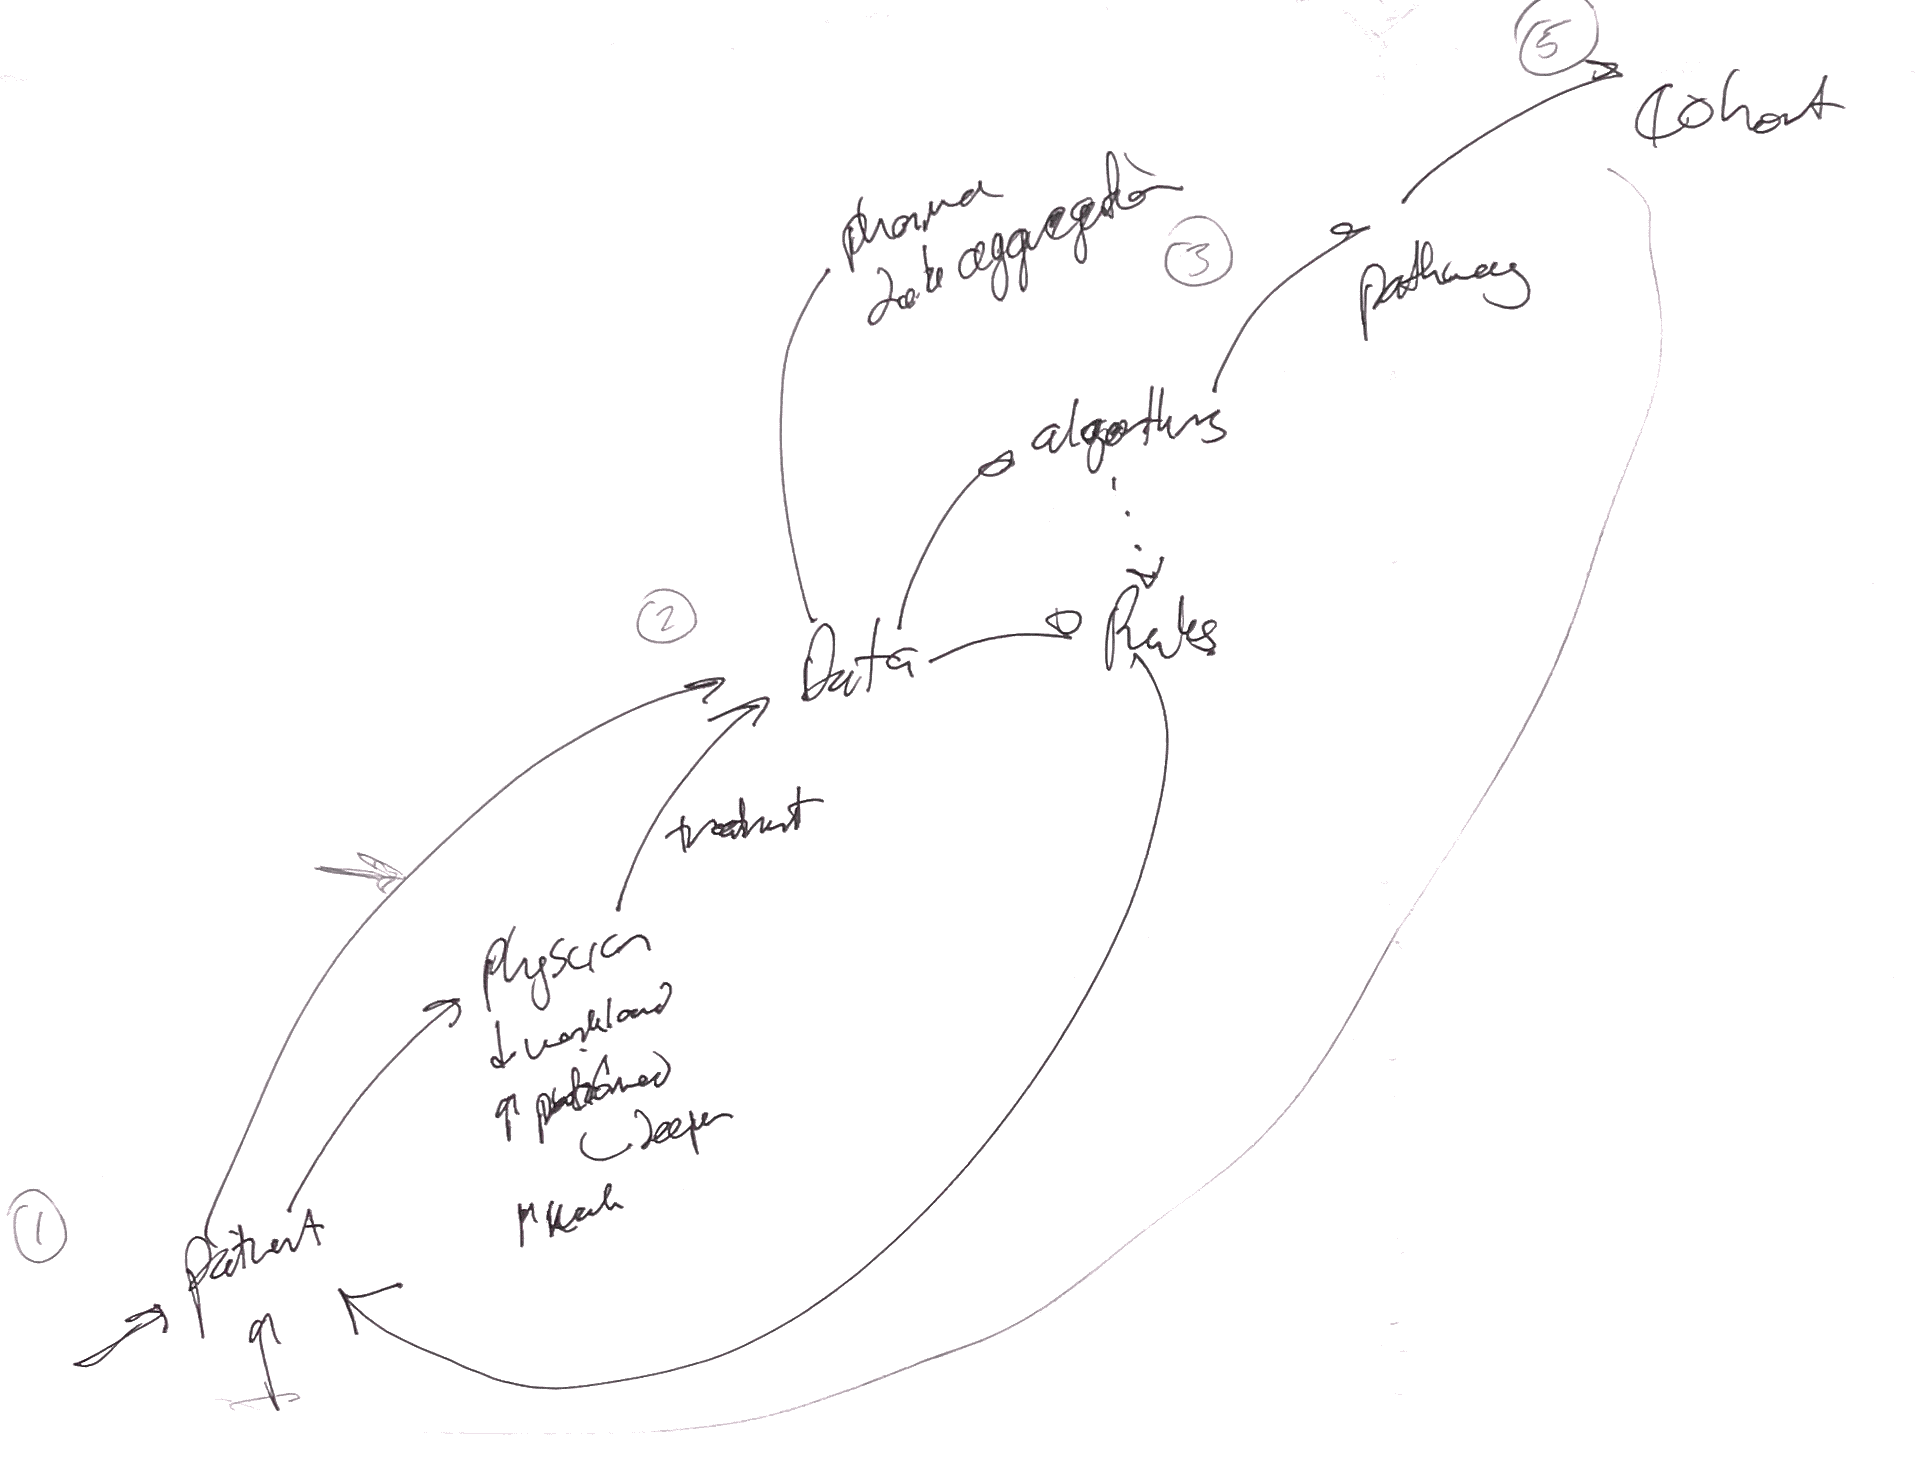 5
Cohort
pharma
data aggregation
3
pathway
algorithms
2
Data
Rules
treatment
physician
↓ workload
↑
deeper
↑
1
patient